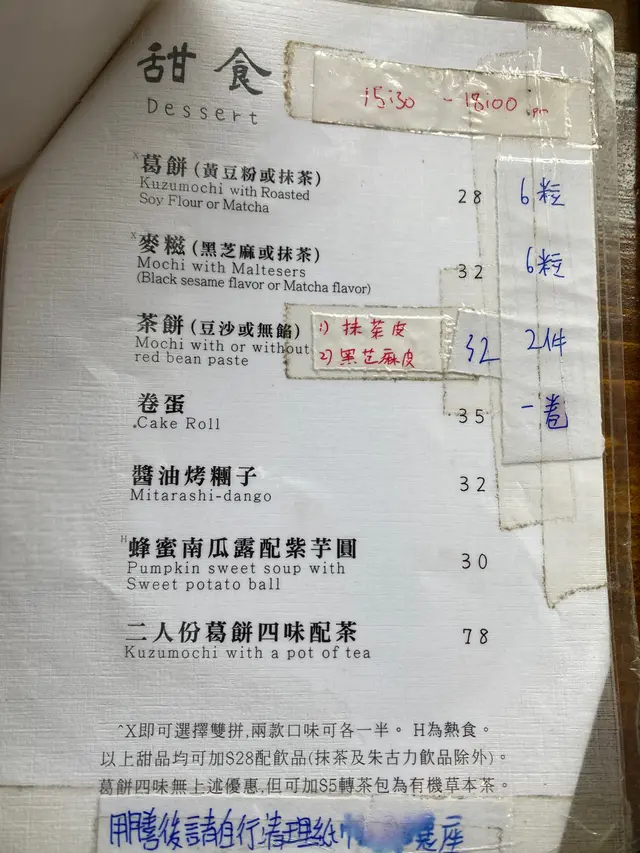 甜食
Dessert
15:30 - 18:00 pm
X葛餅(黃豆粉或抹茶)
Kuzumochi with Roasted
Soy Flour or Matcha
28 6粒
X麥糍(黑芝麻或抹茶)
Mochi with Maltesers
(Black sesame flavor or Matcha flavor)
32 6粒
茶餅(豆沙或無餡)
Mochi with or without
red bean paste
1) 抹茶皮
2) 黑芝麻皮
32 2件
卷蛋
Cake Roll
35 一卷
醬油烤糰子
Mitarashi-dango
32
H蜂蜜南瓜露配紫芋圓
Pumpkin sweet soup with
Sweet potato ball
30
二人份葛餅四味配茶
Kuzumochi with a pot of tea
78
^X即可選擇雙拼,兩款口味可各一半。 H為熱食。
以上甜品均可加S28配飲品(抹茶及朱古力飲品除外)。
葛餅四味無上述優惠,但可加S5轉茶包為有機草本茶。
用膳後請自行清理紙巾 座